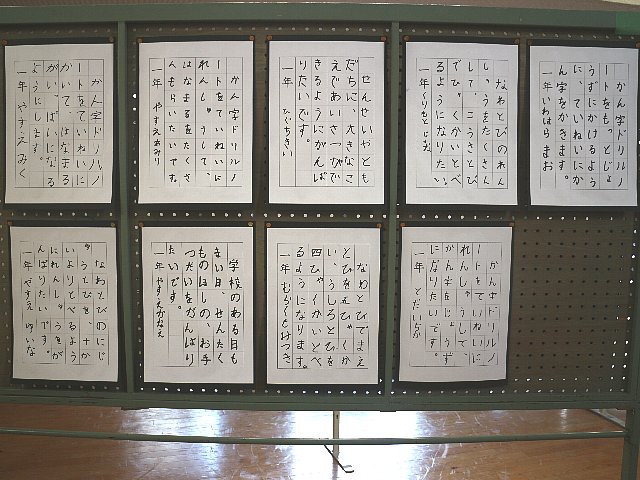 かん字ドリルノ
ートをもっとじょ
うずにかけるよう
に、ていねいにか
ん字をかきます。
一年 いわはら まお
なわとびのれん
しゅうをたくさん
して、こうさとび
でひゃくかいとべ
るようになりたい。
一年 くりもと
せんせいやとも
だちに、大きなこ
えであいさつがで
きるようにがんば
りたいです。
一年 ひぐちきい
かん字ドリルノ
ートをていねいに
れんしゅうして、
はなまるをたくさ
んもらいたいです。
一年 やすえあみり
かん字ドリルノ
ートをていねいに
かいて、はなまる
がいっぱいになる
ようにします。
一年 やすえ みく
かん字ドリルノ
ートをていねいに
れんしゅうして、
かん字をじょうず
になりたいです。
一年 とだいちか
なわとびでまえ
とびを五ひゃくか
い、うしろとびを
四ひゃくかいとべ
るようになります。
一年 むらくもみつき
学校のある日も
まい日、せんたく
ものほしの、お手
つだいをがんばり
たいです。
一年 やすえかなえ
なわとびのにじ
ゅうとびを、十か
いよりとべるよう
にれんしゅうをが
んばりたいです。
一年 やすえ ゆいな